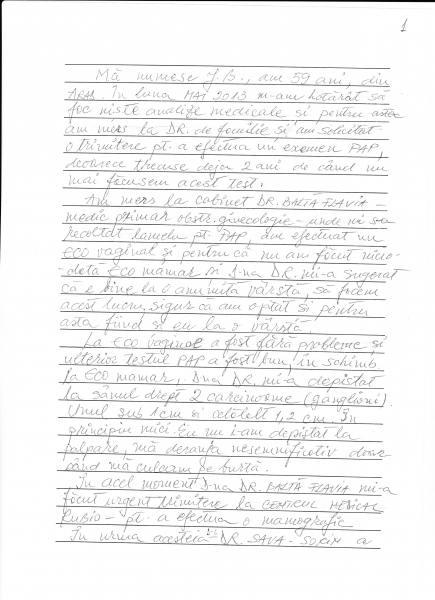 1
Mă numesc J.B., am 59 ani, din
ARAD. În luna MAI 2013 m-am hotărât să
fac niste analize medicale si pentru asta
am mers la DR. de familie si am solicitat
o trimitere pt. a efectua un examen PAP,
deoarece trecuse deja 2 ani de când nu
mai făcusem acest test.
Am mers la cabinet DR. BALTĂ FLAVIA -
medic primar obstr. ginecologie - unde mi s-a
recoltat lamelu pt. PAP, am efectuat un
ECO vaginal si pentru că nu am făcut nicio-
dată ECO mamar si D-na DR. mi-a sugerat
că e bine la o anumită vârstă, să facem
acest lucru, sigur că am optat si pentru
asta fiind si eu la o vârstă.
La ECO vaginal a fost fără probleme si
ulterior testul PAP a fost bun, în schimb
la ECO mamar, D-na DR. mi-a depistat
la sânul drept 2 carcinoame (ganglioni).
Unul sub 1cm si celălalt 1,2 cm. În
principiu mici. Eu nu i-am depistat la
palpare, mă deranja nesemnificativ doar
când mă culcam pe burtă.
În acel moment D-na DR. BALTĂ FLAVIA mi-a
făcut urgent trimitere la CENTRUL MEDICAL
pt. a efectua o mamografie
În urma acesteia DR. SAVA - SORIN a